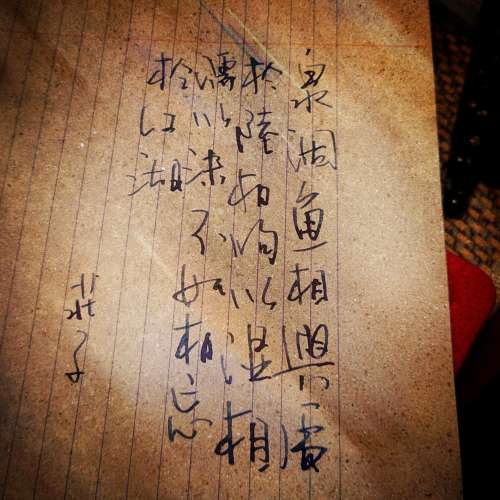 泉涸魚相與處
於陸相呴以濕相
濡以沫不如相忘
於江湖
莊子